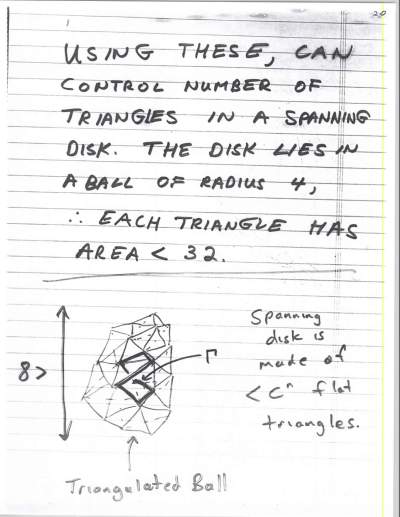 20
USING THESE, CAN
CONTROL NUMBER OF
TRIANGLES IN A SPANNING
DISK. THE DISK LIES IN
A BALL OF RADIUS 4,
∴ EACH TRIANGLE HAS
AREA < 32.
8>
Γ
Spanning
disk is
made of
< Cⁿ flat
triangles.
Triangulated Ball